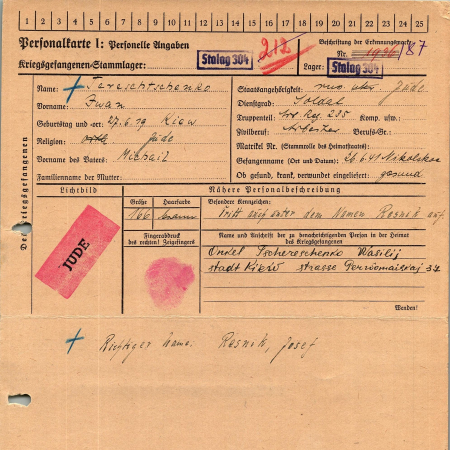 1 2 3 4 5 6 7 8 9 10 11 12 13 14 15 16 17 18 19 20 21 22 23 24 25
Personalkarte I: Personelle Angaben
Kriegsgefangenen-Stammlager: Stalag 304
212
Beschriftung der Erkennungsmarke
Nr. 1936/87
Lager: Stalag 304
Des Kriegsgefangenen
Name: Tereschtschenko
Vorname: Iwan
Geburtstag und -ort: 27.6.19 Kiew
Religion: orth. Jude
Vorname des Vaters: Michail
Familienname der Mutter:
Staatsangehörigkeit: Jude
Dienstgrad: Soldat
Truppenteil: 235 Komp. usw.:
Zivilberuf: Arbeiter Berufs-Gr.:
Matrikel Nr. (Stammrolle des Heimatstaates):
Gefangennahme (Ort und Datum): 26.6.41 Nikolskoe
Ob gesund, krank, verwundet eingeliefert: gesund
Lichtbild
Nähere Personalbeschreibung
Größe Haarfarbe
166 braun
Besondere Kennzeichen:
Tritt auf unter dem Namen Resnik auf
Fingerabdruck
des rechten! Zeigefingers
Name und Anschrift der zu benachrichtigenden Person in der Heimat
des Kriegsgefangenen
Onkel Tschereschenko Wasilij
stadt Kiew strasse Perwomaiskaj 37
JUDE
Wenden!
Richtiger Name. Resnik, Josef